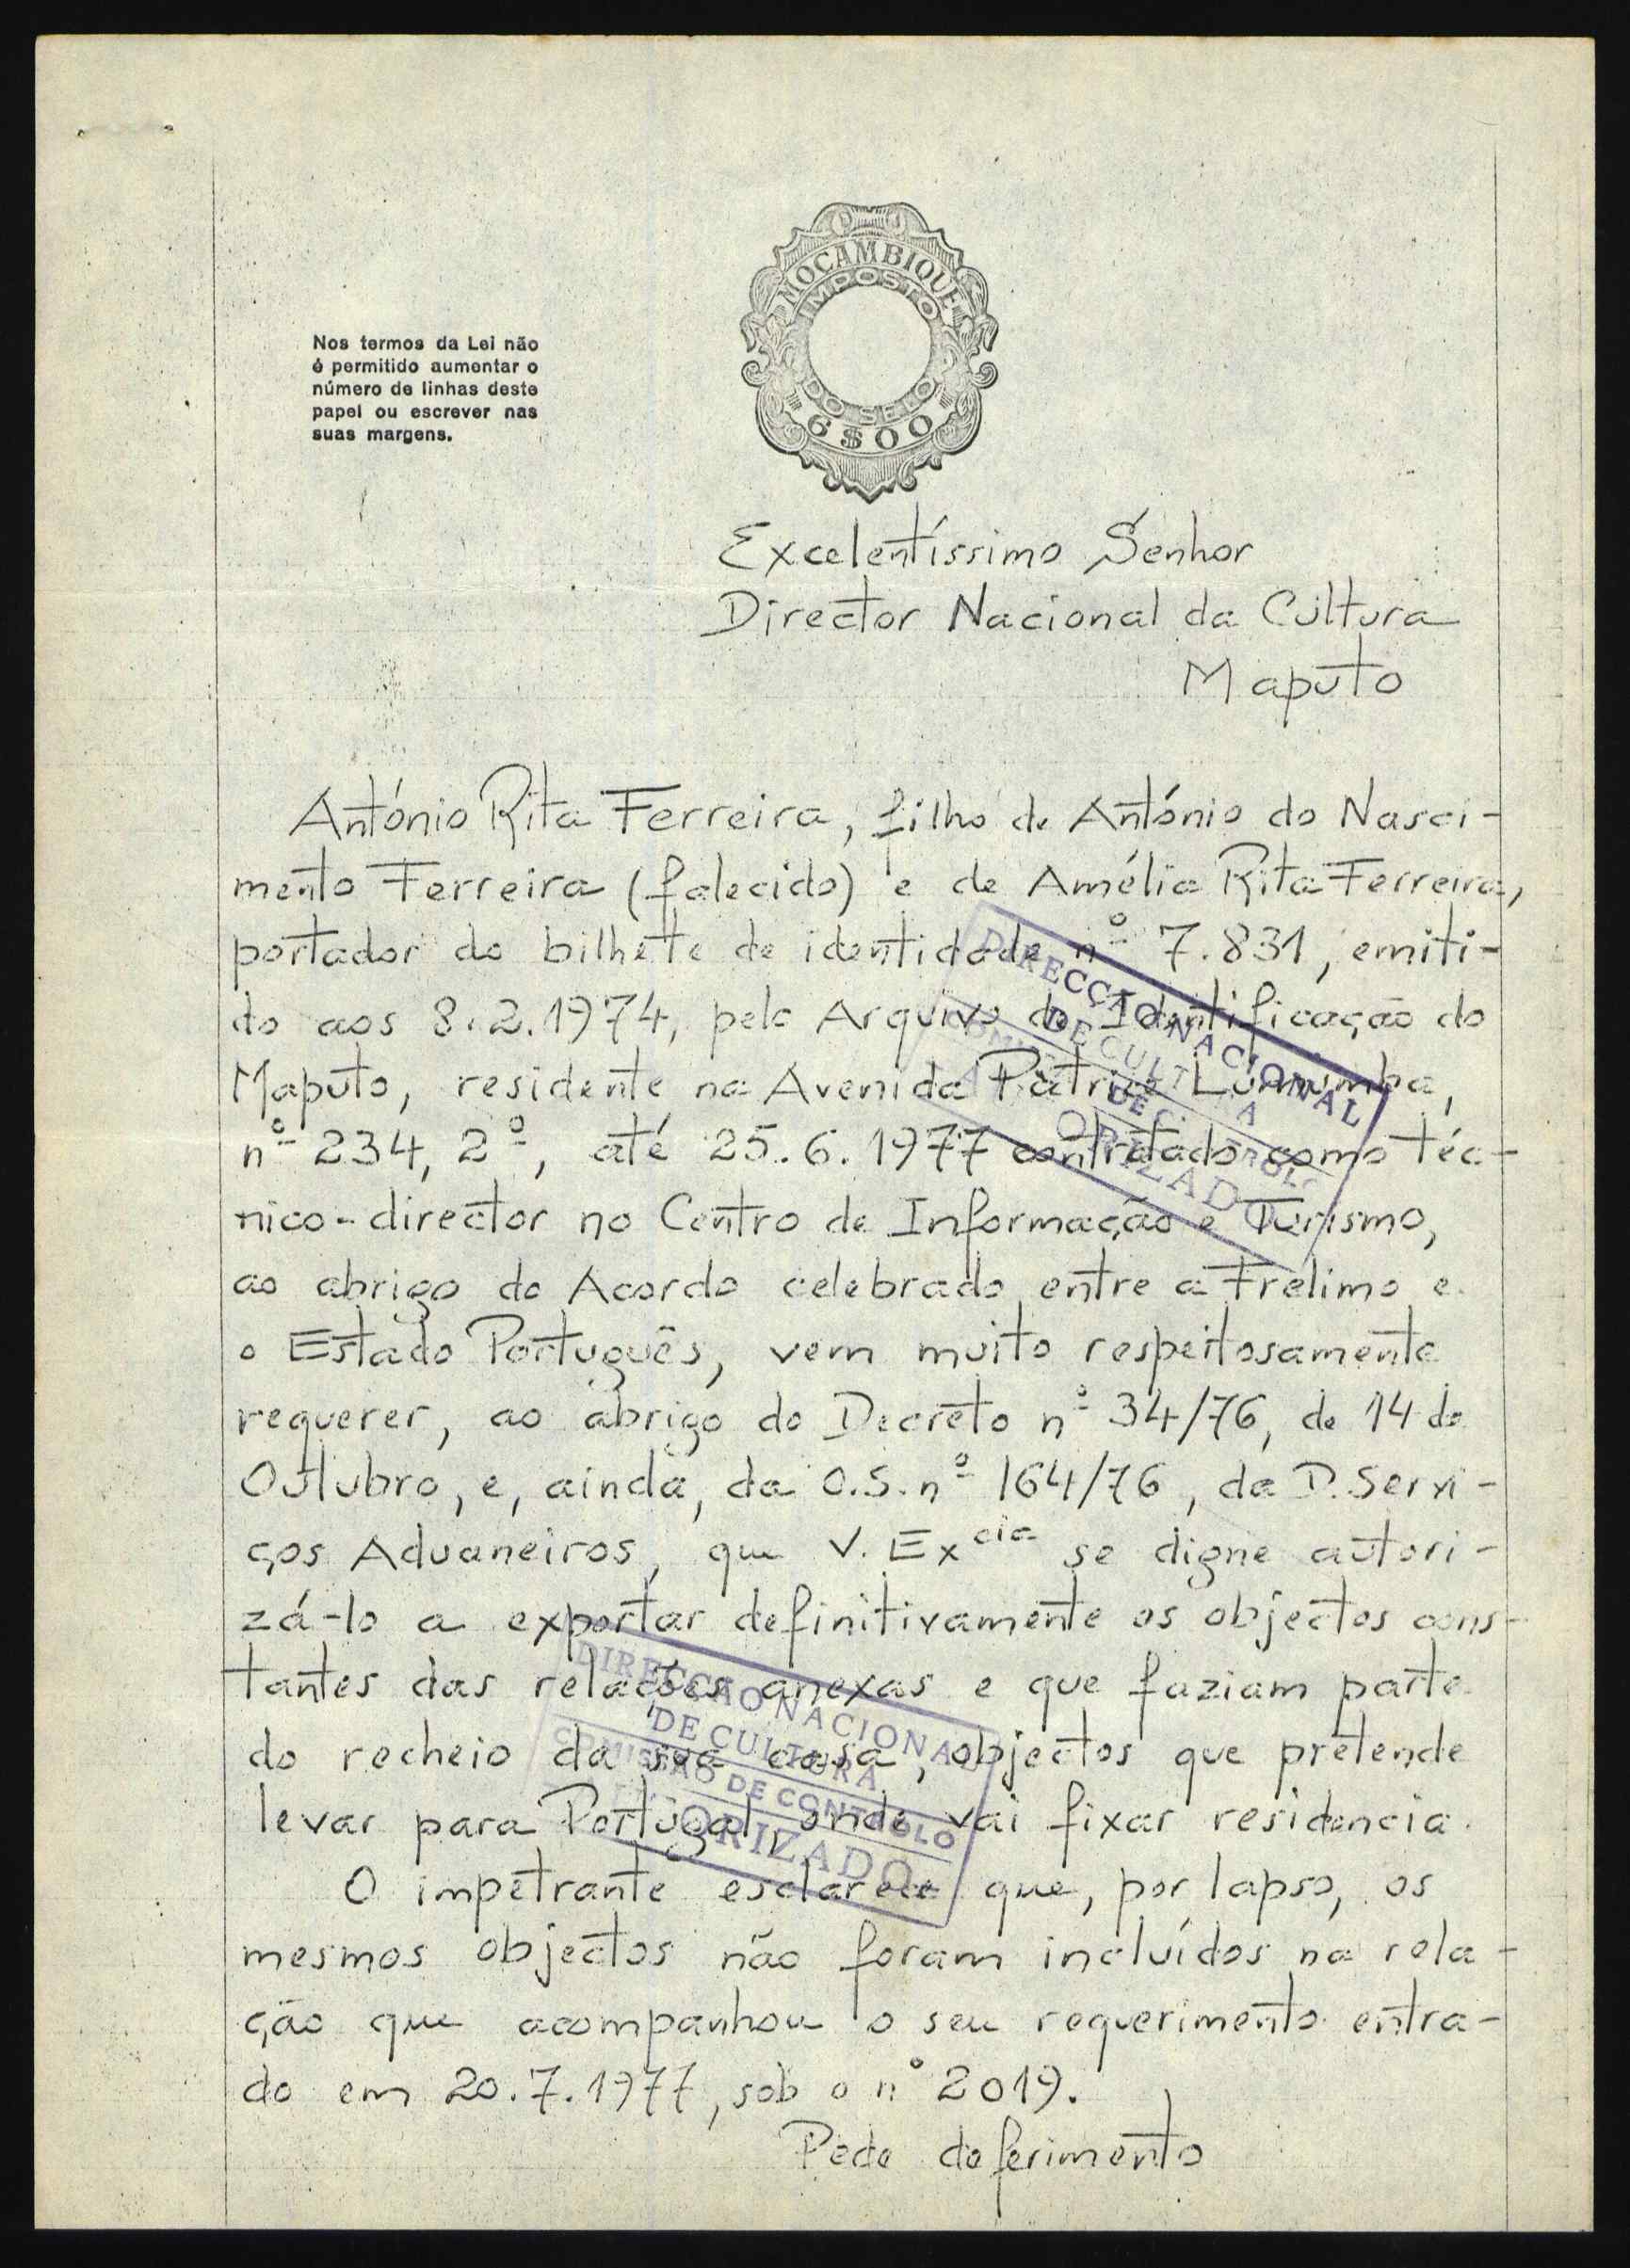 Nos termos da Lei não
é permitido aumentar o
número de linhas deste
papel ou escrever nas
suas margens.
MOÇAMBIQUE
IMPOSTO
DO SELO
6$00
Excelentíssimo Senhor
Director Nacional da Cultura
Maputo
António Rita Ferreira, filho de António do Nasci-
mento Ferreira (falecido) e de Amélia Rita Ferreira,
portador do bilhete de identidade nº 7.831, emiti-
do aos 8.2.1974, pelo Arquivo de Identificação do
Maputo, residente na Avenida Patrice Lumumba,
nº 234, 2º, até 25.6.1977 contratado como téc-
nico-director no Centro de Informação e Turismo,
ao abrigo do Acordo celebrado entre a Frelimo e
o Estado Português, vem muito respeitosamente
requerer, ao abrigo do Decreto nº 34/76, de 14 de
Outubro, e, ainda, da O.S. nº 164/76, da D. Servi-
ços Aduaneiros, que V. Excia se digne autori-
zá-lo a exportar definitivamente os objectos cons-
tantes das relações anexas e que faziam parte
do recheio da sua casa, objectos que pretende
levar para Portugal, onde vai fixar residencia.
O impetrante esclarece que, por lapso, os
mesmos objectos não foram incluídos na rela-
ção que acompanhou o seu requerimento entra-
do em 20.7.1977, sob o nº 2019.
Pede deferimento
DIRECÇÃO NACIONAL
DE CULTURA
COMISSÃO DE CONTROLO
AUTORIZADO
DIRECÇÃO NACIONAL
DE CULTURA
COMISSÃO DE CONTROLO
AUTORIZADO